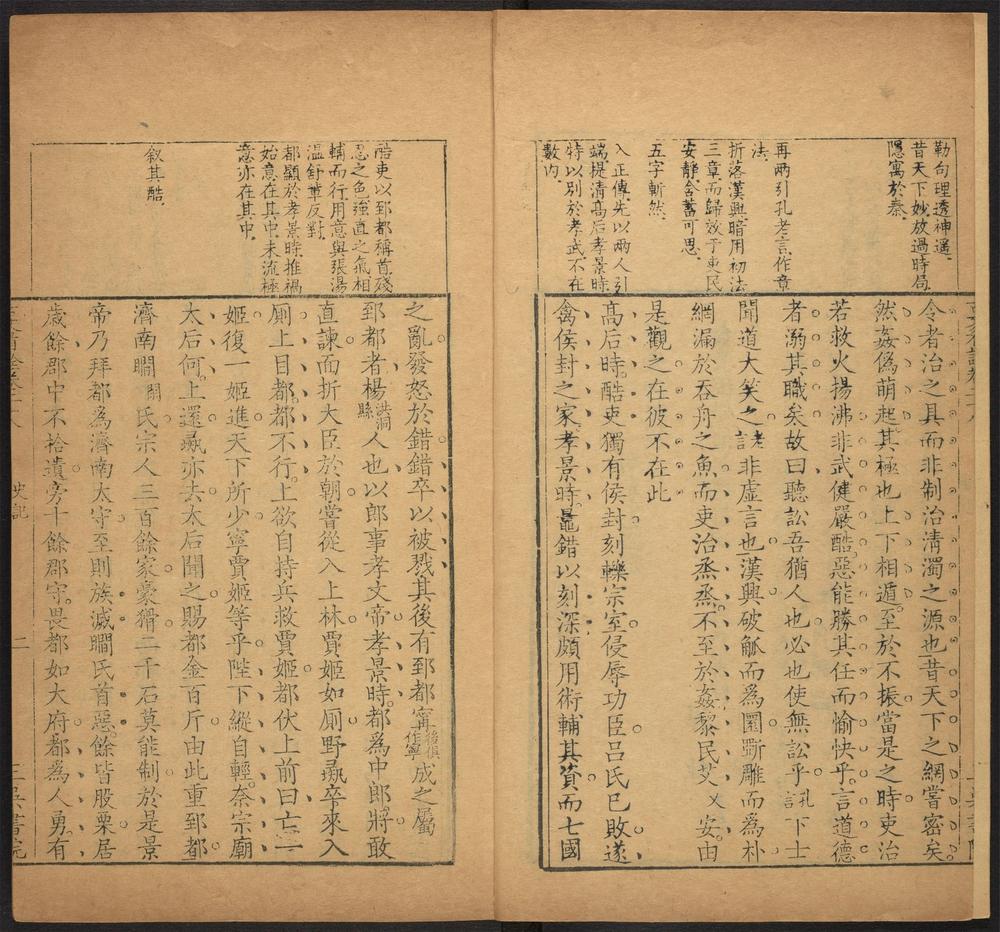 勒句理透神遥
昔天下妙放過時局
隱寓於秦
再兩引孔老言作章
法
折落漢興暗用初法
三章而歸效于吏民
安靜含蓄可思
五字斬然
入正傳先以兩人引
端提清高后孝景時
特以別於孝武不在
數内
令者治之具而非制治清濁之源也昔天下之網嘗密矣
然姦僞萌起其極也上下相遁至於不振當是之時吏治
若救火揚沸非武健嚴酷惡能勝其任而愉快乎言道德
者溺其職矣故曰聽訟吾猶人也必也使無訟乎孔語下士
聞道大笑之老語非虛言也漢興破觚而爲圜斲雕而爲朴
網漏於吞舟之魚而吏治烝烝不至於姦黎民艾乂安由
是觀之在彼不在此
高后時酷吏獨有侯封刻轢宗室侵辱功臣呂氏已敗遂
禽侯封之家孝景時鼂錯以刻深頗用術輔其資而七國
酷吏以郅都稱首殘
忍之色強直之氣相
輔而行用意與張湯
溫舒輩反對
都顯於孝景時推禍
始意在其中未流極
意亦在其中
叙其酷
之亂發怒於錯錯卒以被戮其後有郅都甯後俱作寧成之屬
郅都者楊洪洞縣人也以郎事孝文帝孝景時都爲中郎將敢
直諫面折大臣於朝嘗從入上林賈姬如厠野彘卒來入
厠上目都都不行上欲自持兵救賈姬都伏上前曰亡一
姬復一姬進天下所少寧賈姬等乎陛下縱自輕奈宗廟
太后何上還彘亦去太后聞之賜都金百斤由此重郅都
濟南瞯閒氏宗人三百餘家豪猾二千石莫能制於是景
帝乃拜都爲濟南太守至則族滅瞯氏首惡餘皆股栗居
歲餘郡中不拾遺旁十餘郡守畏都如大府都爲人勇有
史記 二